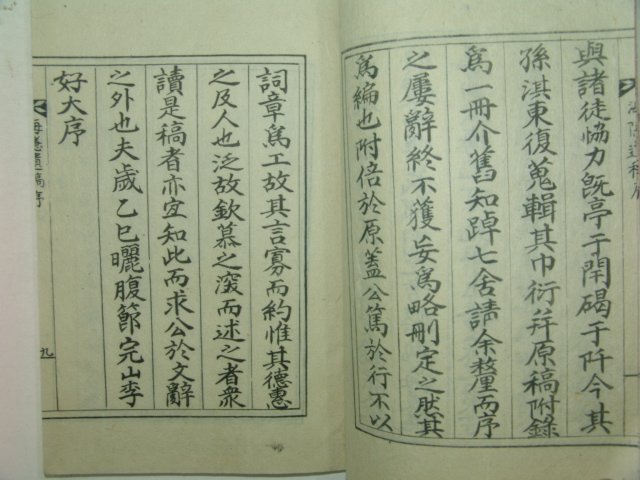 與諸徒恊力旣亭于閈碣于阡今其
孫淇東復蒐輯其巾衍幷原稿附錄
爲一冊介舊知踔七舍請余整而序
之屢辭終不獲妄爲略刪定之然其
爲編也附倍於原蓋公篤於行不以
詞章爲工故其言寡而約惟其德惠
之及人也泛故欽慕之深而述之者衆
讀是稿者亦宜知此而求公於文辭
之外也夫歲乙巳曬腹節完山李
好大序
遺稿序
九